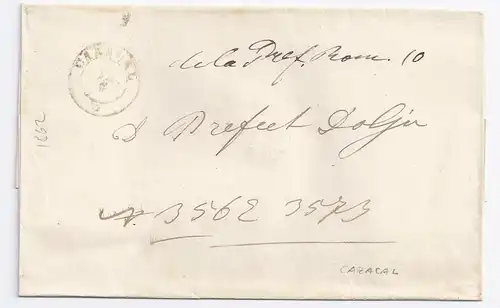 CARACAL
de la Pref. Rom. 10
D Prefect Doljiu
No. 3562 3573
1662
CARACAL